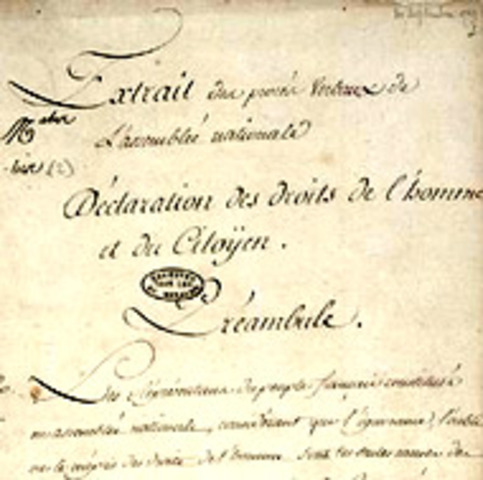 Extrait des procès Verbaux de
L'assemblée nationale
Déclaration des droits de l'homme
et du Citoÿen.
Préambule.
Les Représentans du peuple français constitués
en assemblée nationale, considérant que l'ignorance, l'oubli
ou le mépris des droits de l'homme sont les seules causes des